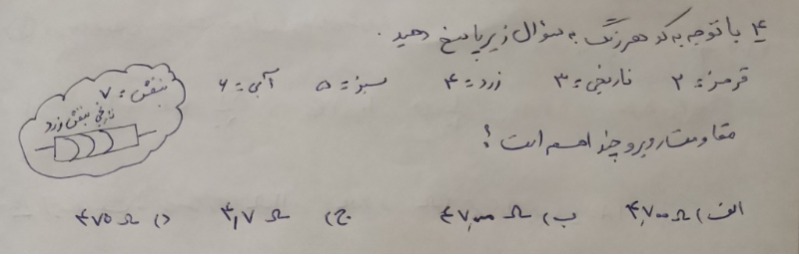 ۴ با توجه به کد هر رنگ به سؤال زیر پاسخ دهید.
قرمز: ۲ نارنجی: ۳ زرد: ۴ سبز: ۵ آبی: ۶ بنفش: ۷
نارنجی بنفش زرد
مقاومت روبرو چند اهم است؟
الف) ۴,۷۰۰ Ω ب) ۴۷,۰۰۰ Ω ج) ۴,۷ Ω د) ۴۷۵ Ω